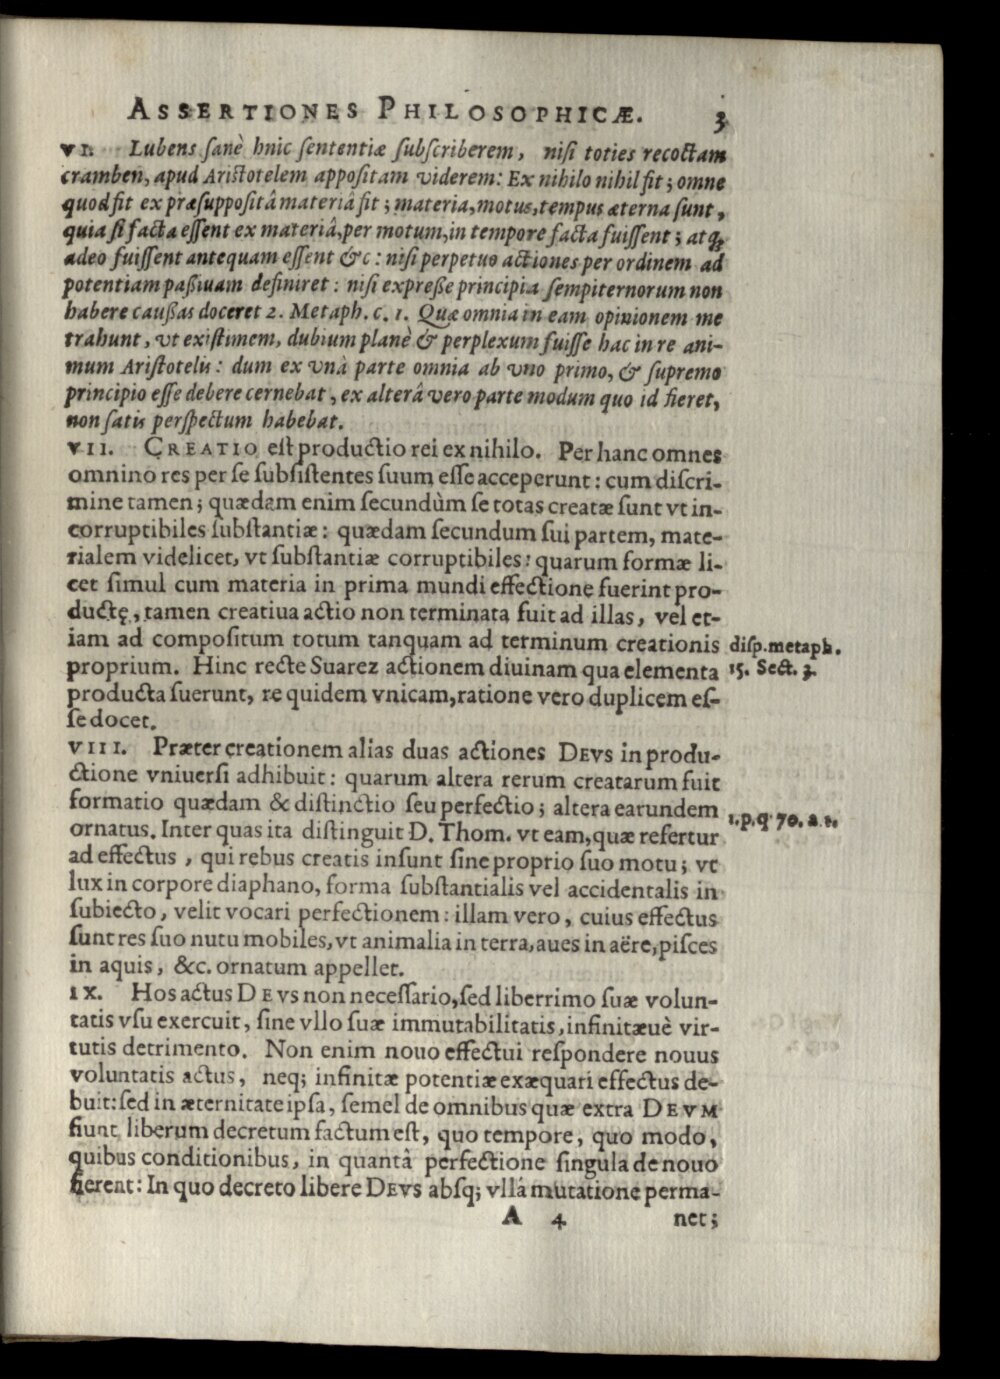 ASSERTIONES PHILOSOPHICÆ. 3
VI. Lubens sanè huic sententiæ subscriberem, nisi toties recoctam
cramben, apud Aristotelem appositam viderem: Ex nihilo nihil fit; omne
quod fit ex præsuppositâ materiâ fit; materia, motus, tempus æterna sunt,
quia si facta essent ex materiâ, per motum, in tempore facta fuissent; atq;
adeo fuissent antequam essent &c: nisi perpetuo actiones per ordinem ad
potentiam passiuam definiret: nisi expresse principia sempiternorum non
habere caussas doceret 2. Metaph. c. 1. Quæ omnia in eam opinionem me
trahunt, vt existimem, dubium planè & perplexum fuisse hac in re ani-
mum Aristotelis: dum ex vnà parte omnia ab vno primo, & supremo
principio esse debere cernebat, ex alterâ vero parte modum quo id fieret,
non satis perspectum habebat.
VII. CREATIO est productio rei ex nihilo. Per hanc omnes
omnino res per se subsistentes suum esse acceperunt: cum discri-
mine tamen; quædam enim secundùm se totas creatæ sunt vt in-
corruptibiles substantiæ: quædam secundum sui partem, mate-
rialem videlicet, vt substantiæ corruptibiles: quarum formæ li-
cet simul cum materia in prima mundi effectione fuerint pro-
ductę, tamen creatiua actio non terminata fuit ad illas, vel et-
iam ad compositum totum tanquam ad terminum creationis
proprium. Hinc recte Suarez actionem diuinam qua elementa
producta fuerunt, re quidem vnicam, ratione vero duplicem es-
se docet.
disp. metaph.
15. Sect. 3.
VIII. Præter creationem alias duas actiones DEVS in produ-
ctione vniuersi adhibuit: quarum altera rerum creatarum fuit
formatio quædam & distinctio seu perfectio; altera earundem
ornatus. Inter quas ita distinguit D. Thom. vt eam, quæ refertur
ad effectus, qui rebus creatis insunt sine proprio suo motu; vt
lux in corpore diaphano, forma substantialis vel accidentalis in
subiecto, velit vocari perfectionem: illam vero, cuius effectus
sunt res suo nutu mobiles, vt animalia in terra, aues in aëre, pisces
in aquis, &c. ornatum appellet.
1. p. q 70. a 1.
IX. Hos actus DEVS non necessario, sed liberrimo suæ volun-
tatis vsu exercuit, sine vllo suæ immutabilitatis, infinitæuè vir-
tutis detrimento. Non enim nouo effectui respondere nouus
voluntatis actus, neq; infinitæ potentiæ exæquari effectus de-
buit: sed in æternitate ipsa, semel de omnibus quæ extra DEVM
fiunt liberum decretum factum est, quo tempore, quo modo,
quibus conditionibus, in quantâ perfectione singula de nouo
fierent: In quo decreto libere DEVS absq; vllâ mutatione perma-
A 4 net;